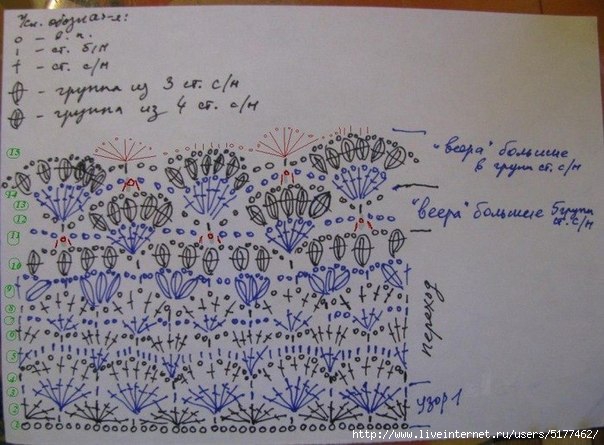 Усл. обознач-я:
о - в. п.
ı - ст. б/н
† - ст. с/н
- группа из 3 ст. с/н
- группа из 4 ст. с/н
"веера" большие
в групп ст. с/н
"веера" большие 5 групп
ст. с/н
переход
узор 1
15
14
13
12
11
10
9
8
7
6
5
4
3
2
1
http://www.liveinternet.ru/users/5177462/